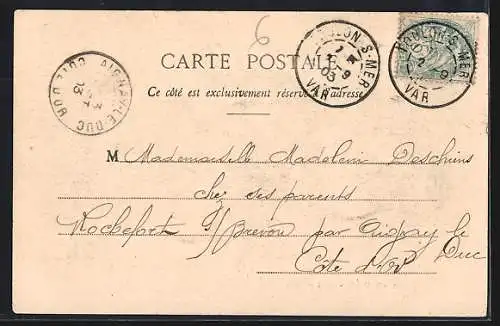 6
CARTE POSTALE
Ce côté est exclusivement réservé à l'adresse
TOULON-S-MER
9
03
VAR
TOULON-S-MER
VAR
AIGNAY-LE-DUC
03
CÔTE D'OR
M Mademoiselle Madelein Deschins
chez ses parents
Rochefort s/ Brevon par Aignay le
Duc
Côte d'Or